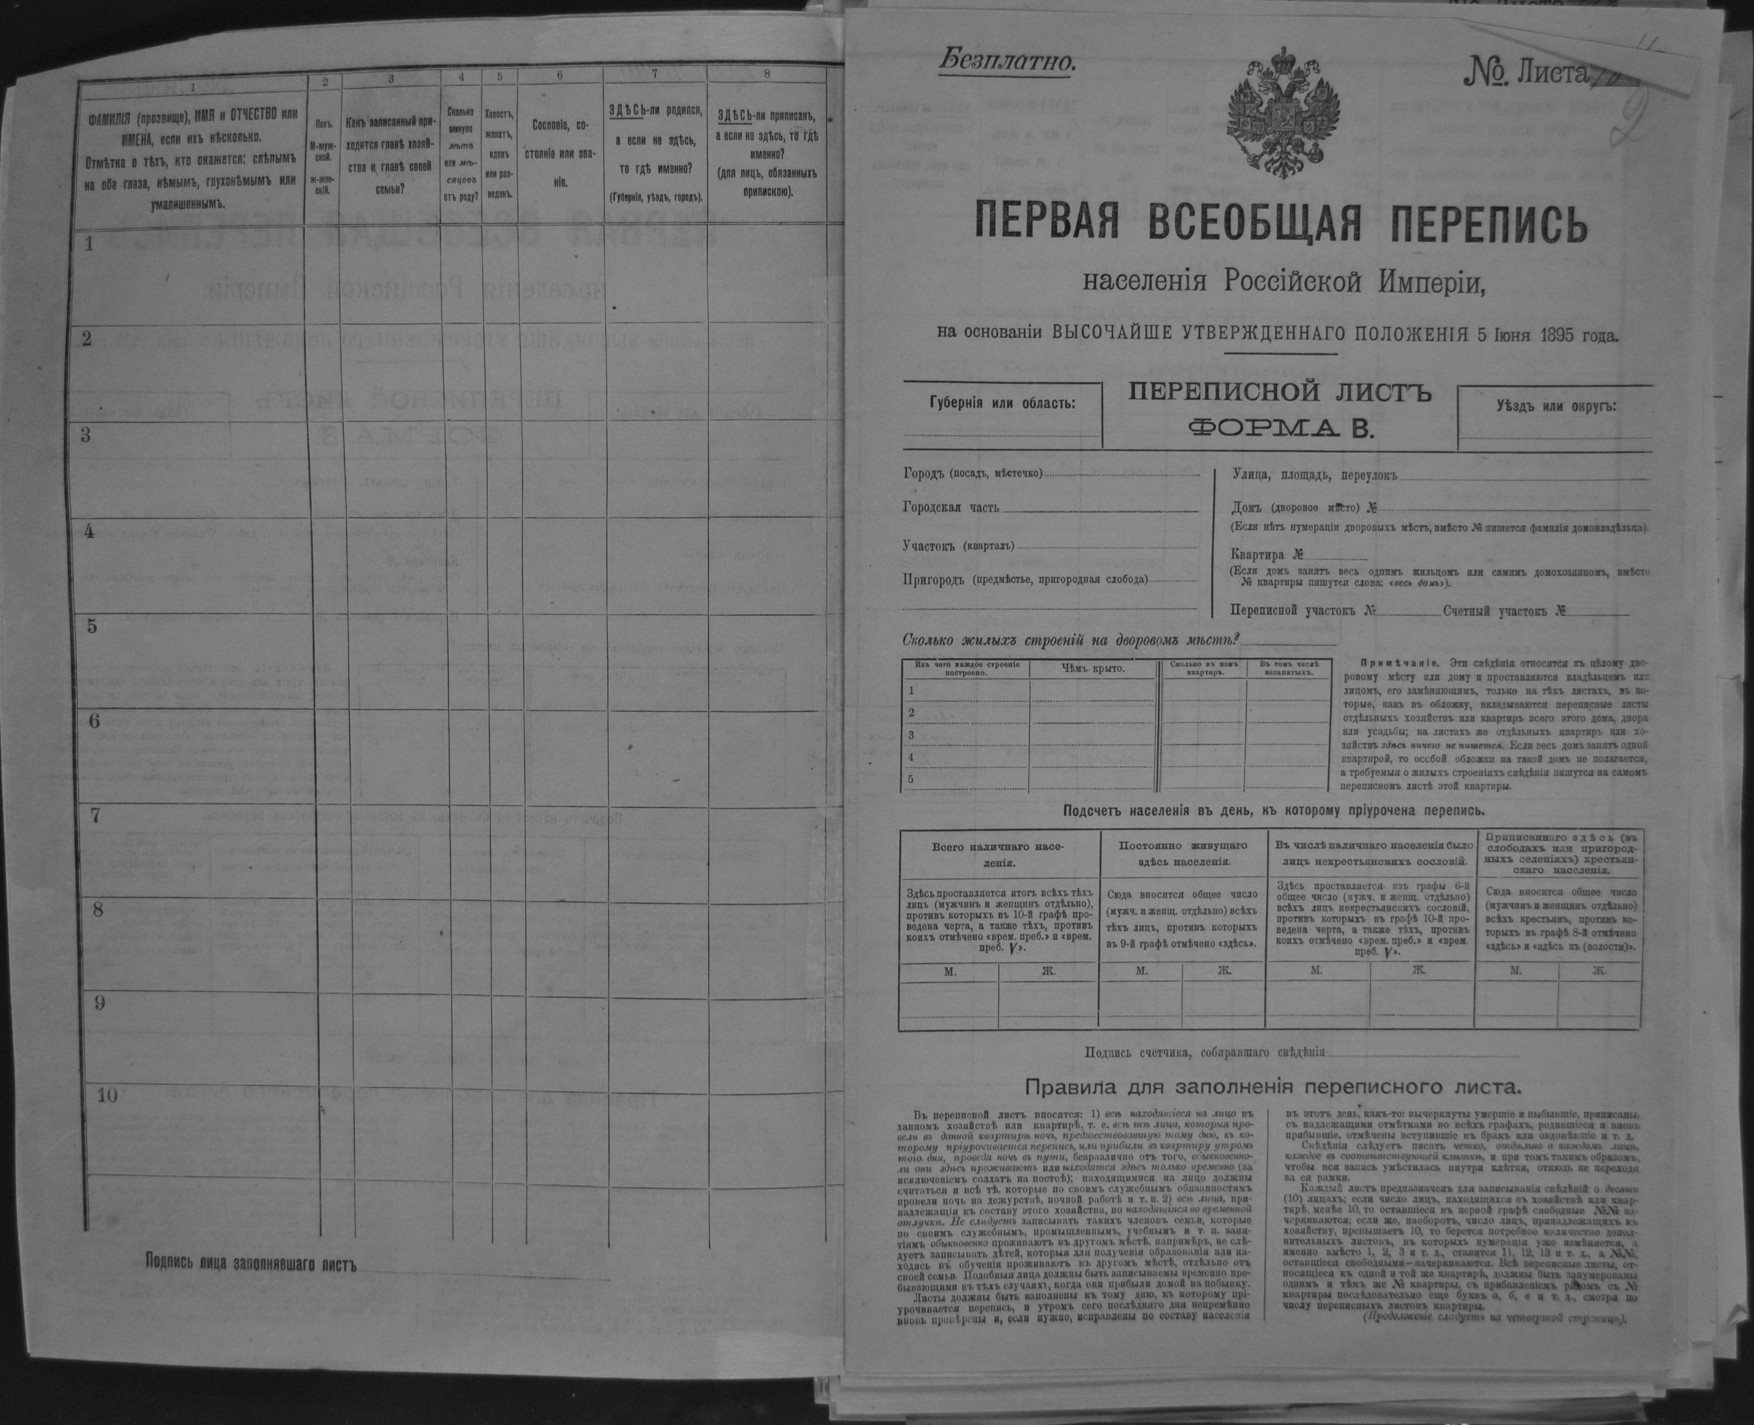 1
2
3
4
5
6
7
8
ФАМИЛІЯ (прозвище), ИМЯ и ОТЧЕСТВО или
ИМЕНА, если ихъ нѣсколько.
Отмѣтка о тѣхъ, кто окажется: слѣпымъ
на оба глаза, нѣмымъ, глухонѣмымъ или
умалишеннымъ.
Полъ.
М-муж-
ской.
Ж-жен-
скій.
Какъ записанный при-
ходится главѣ хозяй-
ства и главѣ своей
семьи?
Сколько
минуло
лѣтъ
или мѣ-
сяцевъ
отъ роду?
Холостъ,
женатъ,
вдовъ
или раз-
веденъ.
Сословіе, со-
стояніе или зва-
ніе.
ЗДѢСЬ-ли родился,
а если не здѣсь,
то гдѣ именно?
(Губернія, уѣздъ, городъ).
ЗДѢСЬ-ли приписанъ,
а если не здѣсь, то гдѣ
именно?
(для лицъ, обязанныхъ
припискою).
1
2
3
4
5
6
7
8
9
10
Подпись лица заполнявшаго листъ
Безплатно.
№. Листа
2
ПЕРВАЯ ВСЕОБЩАЯ ПЕРЕПИСЬ
населенія Россійской Имперіи,
на основаніи ВЫСОЧАЙШЕ УТВЕРЖДЕННАГО ПОЛОЖЕНІЯ 5 Іюня 1895 года.
Губернія или область:
ПЕРЕПИСНОЙ ЛИСТЪ
ФОРМА В.
Уѣздъ или округъ:
Городъ (посадъ, мѣстечко)
Городская часть
Участокъ (кварталъ)
Пригородъ (предмѣстье, пригородная слобода)
Улица, площадь, переулокъ
Домъ (дворовое мѣсто) №
(Если нѣтъ нумераціи дворовыхъ мѣстъ, вмѣсто № пишется фамилія домовладѣльца).
Квартира №
(Если домъ занятъ весь однимъ жильцомъ или самимъ домохозяиномъ, вмѣсто
№ квартиры пишутся слова: «весь домъ»).
Переписной участокъ № Счетный участокъ №
Сколько жилыхъ строеній на дворовомъ мѣстѣ?
Изъ чего каждое строеніе
построено.
Чѣмъ крыто.
Сколько въ немъ
квартиръ.
Въ томъ числѣ
незанятыхъ.
1
2
3
4
5
Примѣчаніе. Эти свѣдѣнія относятся къ цѣлому дво-
ровому мѣсту или дому и проставляются владѣльцемъ или
лицомъ, его замѣняющимъ, только на тѣхъ листахъ, въ ко-
торые, какъ въ обложку, вкладываются переписные листы
отдѣльныхъ хозяйствъ или квартиръ всего этого дома, двора
или усадьбы; на листахъ же отдѣльныхъ квартиръ или хо-
зяйствъ здѣсь ничего не пишется. Если весь домъ занятъ одной
квартирой, то особой обложки на такой домъ не полагается,
а требуемыя о жилыхъ строеніяхъ свѣдѣнія пишутся на самомъ
переписномъ листѣ этой квартиры.
Подсчетъ населенія въ день, къ которому пріурочена перепись.
Всего наличнаго насе-
ленія.
Здѣсь проставляется итогъ всѣхъ тѣхъ
лицъ (мужчинъ и женщинъ отдѣльно),
противъ которыхъ въ 10-й графѣ про-
ведена черта, а также тѣхъ, противъ
коихъ отмѣчено «врем. преб.» и «врем.
преб. V».
Постоянно живущаго
здѣсь населенія.
Сюда вносится общее число
(мужч. и женщ. отдѣльно) всѣхъ
тѣхъ лицъ, противъ которыхъ
въ 9-й графѣ отмѣчено «здѣсь».
Въ числѣ наличнаго населенія было
лицъ некрестьянскихъ сословій.
Здѣсь проставляется изъ графы 6-й
общее число (мужч. и женщ. отдѣльно)
всѣхъ лицъ некрестьянскихъ сословій,
противъ которыхъ въ графѣ 10-й про-
ведена черта, а также тѣхъ, противъ
коихъ отмѣчено «врем. преб.» и «врем.
преб. V».
Приписаннаго здѣсь (въ
слободахъ или пригород-
ныхъ селеніяхъ) крестьян-
скаго населенія.
Сюда вносится общее число
(мужчинъ и женщинъ отдѣльно)
всѣхъ крестьянъ, противъ ко-
торыхъ въ графѣ 8-й отмѣчено
«здѣсь» и «здѣсь къ (волости)».
М. Ж. М. Ж. М. Ж. М. Ж.
Подпись счетчика, собиравшаго свѣдѣнія
Правила для заполненія переписного листа.
Въ переписной листъ вносятся: 1) всѣ находящіеся на лицо въ
данномъ хозяйствѣ или квартирѣ, т. е. всѣ тѣ лица, которыя про-
вели въ данной квартирѣ ночь, предшествовавшую тому дню, къ ко-
торому пріурочивается перепись, или прибыли въ квартиру утромъ
того дня, проведя ночь въ пути, безразлично отъ того, обыкновенно-
ли они здѣсь проживаютъ или находятся здѣсь только временно (за
исключеніемъ солдатъ на постоѣ); находящимися на лицо должны
считаться и всѣ тѣ, которые по своимъ служебнымъ обязанностямъ
провели ночь на дежурствѣ, ночной работѣ и т. п. 2) всѣ лица, при-
надлежащія къ составу этого хозяйства, но находящіяся во временной
отлучкѣ. Не слѣдуетъ записывать такихъ членовъ семьи, которые
по своимъ служебнымъ, промышленнымъ, учебнымъ и т. п. заня-
тіямъ обыкновенно проживаютъ въ другомъ мѣстѣ, напримѣръ, не слѣ-
дуетъ записывать дѣтей, которыя для полученія образованія или на-
ходясь въ обученіи проживаютъ въ другомъ мѣстѣ, отдѣльно отъ
своей семьи. Подобныя лица должны быть записываемы временно пре-
бывающими въ тѣхъ случаяхъ, когда они прибыли домой на побывку.
Листы должны быть заполнены къ тому дню, къ которому прі-
урочивается перепись, и утромъ сего послѣдняго дня непремѣнно
вновь провѣрены и, если нужно, исправлены по составу населенія
въ этотъ день, какъ-то: вычеркнуты умершіе и выбывшіе, приписаны,
съ надлежащими отмѣтками во всѣхъ графахъ, родившіеся и вновь
прибывшіе, отмѣчены вступившіе въ бракъ или овдовѣвшіе и т. д.
Свѣдѣнія слѣдуетъ писать четко, отдѣльно о каждомъ лицѣ,
каждое въ соотвѣтствующей клѣткѣ, и при томъ такимъ образомъ,
чтобы вся запись умѣстилась внутри клѣтки, отнюдь не переходя
за ея рамки.
Каждый листъ предназначенъ для записыванія свѣдѣній о десяти
(10) лицахъ; если число лицъ, находящихся въ хозяйствѣ или квар-
тирѣ, менѣе 10, то оставшіеся въ первой графѣ свободные №№ за-
черкиваются; если же, наоборотъ, число лицъ, принадлежащихъ къ
хозяйству, превышаетъ 10, то берется потребное количество допол-
нительныхъ листовъ, въ которыхъ нумерація уже измѣняется, а
именно вмѣсто 1, 2, 3 и т. д., ставится 11, 12, 13 и т. д., а №№,
оставшіеся свободными—зачеркиваются. Всѣ переписные листы, от-
носящіеся къ одной и той же квартирѣ, должны быть занумерованы
однимъ и тѣмъ же № квартиры, съ прибавленіемъ рядомъ съ №
квартиры послѣдовательно еще буквъ а, б, в и т. д., смотря по
числу переписныхъ листовъ квартиры.
(Продолженіе слѣдуетъ на четвертой страницѣ).